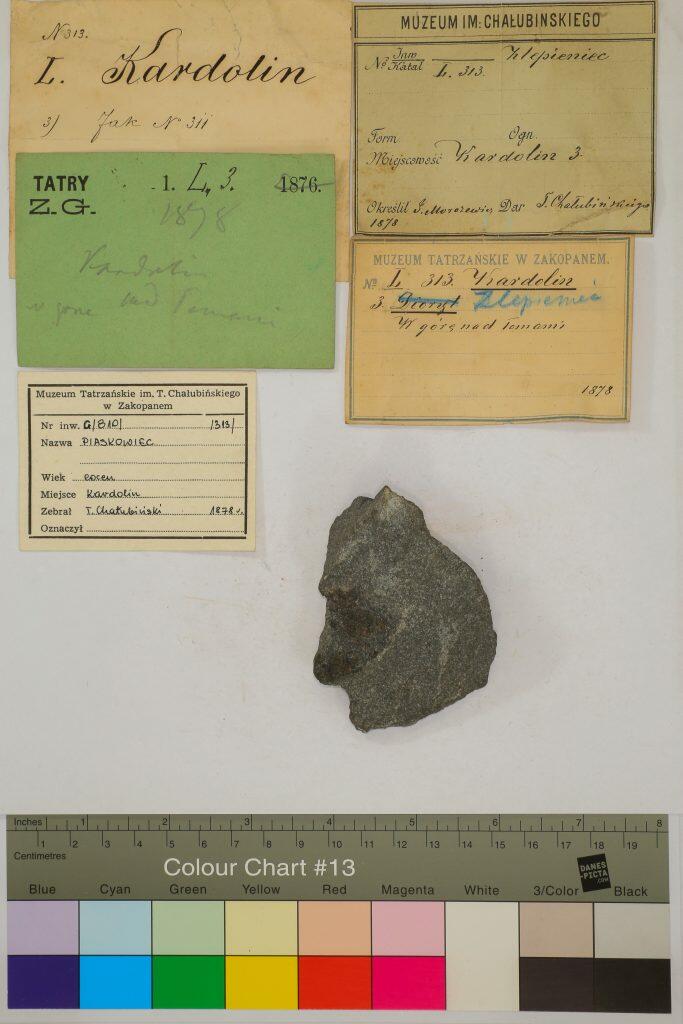 N 313.
L. Kardolin
3) Jak № 311
MUZEUM IM: CHAŁUBINSKIEGO
№ Inw Katal L. 313. Zlepieniec
Form Ogn.
Miejscowość Kardolin 3.
Określił J. Morozewicz Dar T. Chałubińskiego
1878
TATRY 1. L, 3. 1876.
Z. G. 1878
Kardolin
w górę nad Tomami
MUZEUM TATRZAŃSKIE W ZAKOPANEM.
№ L 313. Kardolin
3. Zlepieniec
W górę nad Tomami
1878
Muzeum Tatrzańskie im. T. Chałubińskiego
w Zakopanem
Nr inw. G/810/ /313/
Nazwa PIASKOWIEC
Wiek eocen
Miejsce Kardolin
Zebrał T. Chałubiński 1878 r.
Oznaczył
Inches 1 2 3 4 5 6 7 8
1 2 3 4 5 6 7 8 9 10 11 12 13 14 15 16 17 18 19
Centimetres
Colour Chart #13
DANES
-PICTA
.COM
Blue Cyan Green Yellow Red Magenta White 3/Color Black